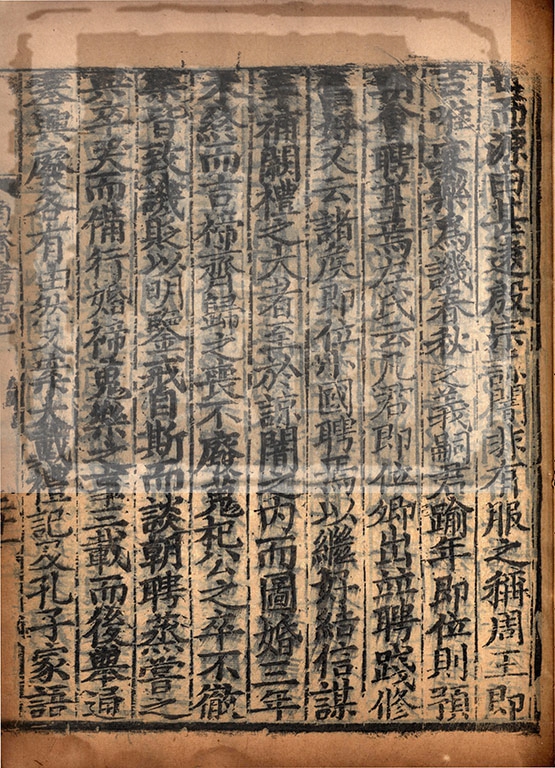 世而源由甚遠殷宗諒闇非有服之稱周王即
吉唯宴樂為譏春秋之義嗣君踰年即位則預
朝會聘享焉左氏云凡君即位卿出並聘踐修
舊好又云諸侯即位小國聘焉以繼好結信謀
事補闕禮之大者至於諒闇之內而圖婚三年
未終而吉禘齊歸之喪不廢蒐杞公之卒不徹
樂皆致譏貶以明鑒戒自斯而談朝聘蒸嘗之
典卒哭而備行婚禘蒐樂之事三載而後舉通
塞興廢各有由然又案大戴禮記及孔子家語
南齊書志一